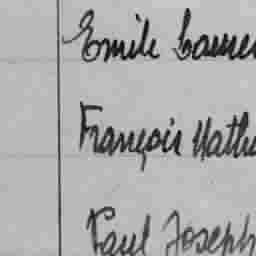 Emile
François Math
Paul Joseph